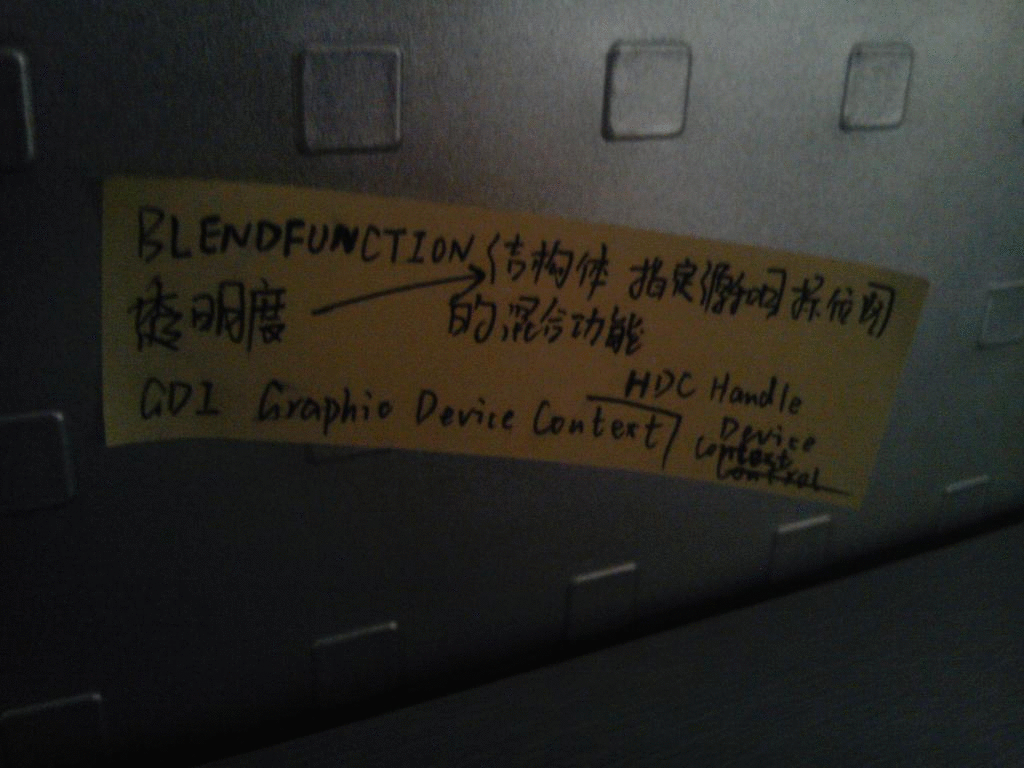 BLENDFUNCTION 结构体 指定源和目标位图
透明度 的混合功能
GDI Graphic Device Context HDC Handle
Device
Context